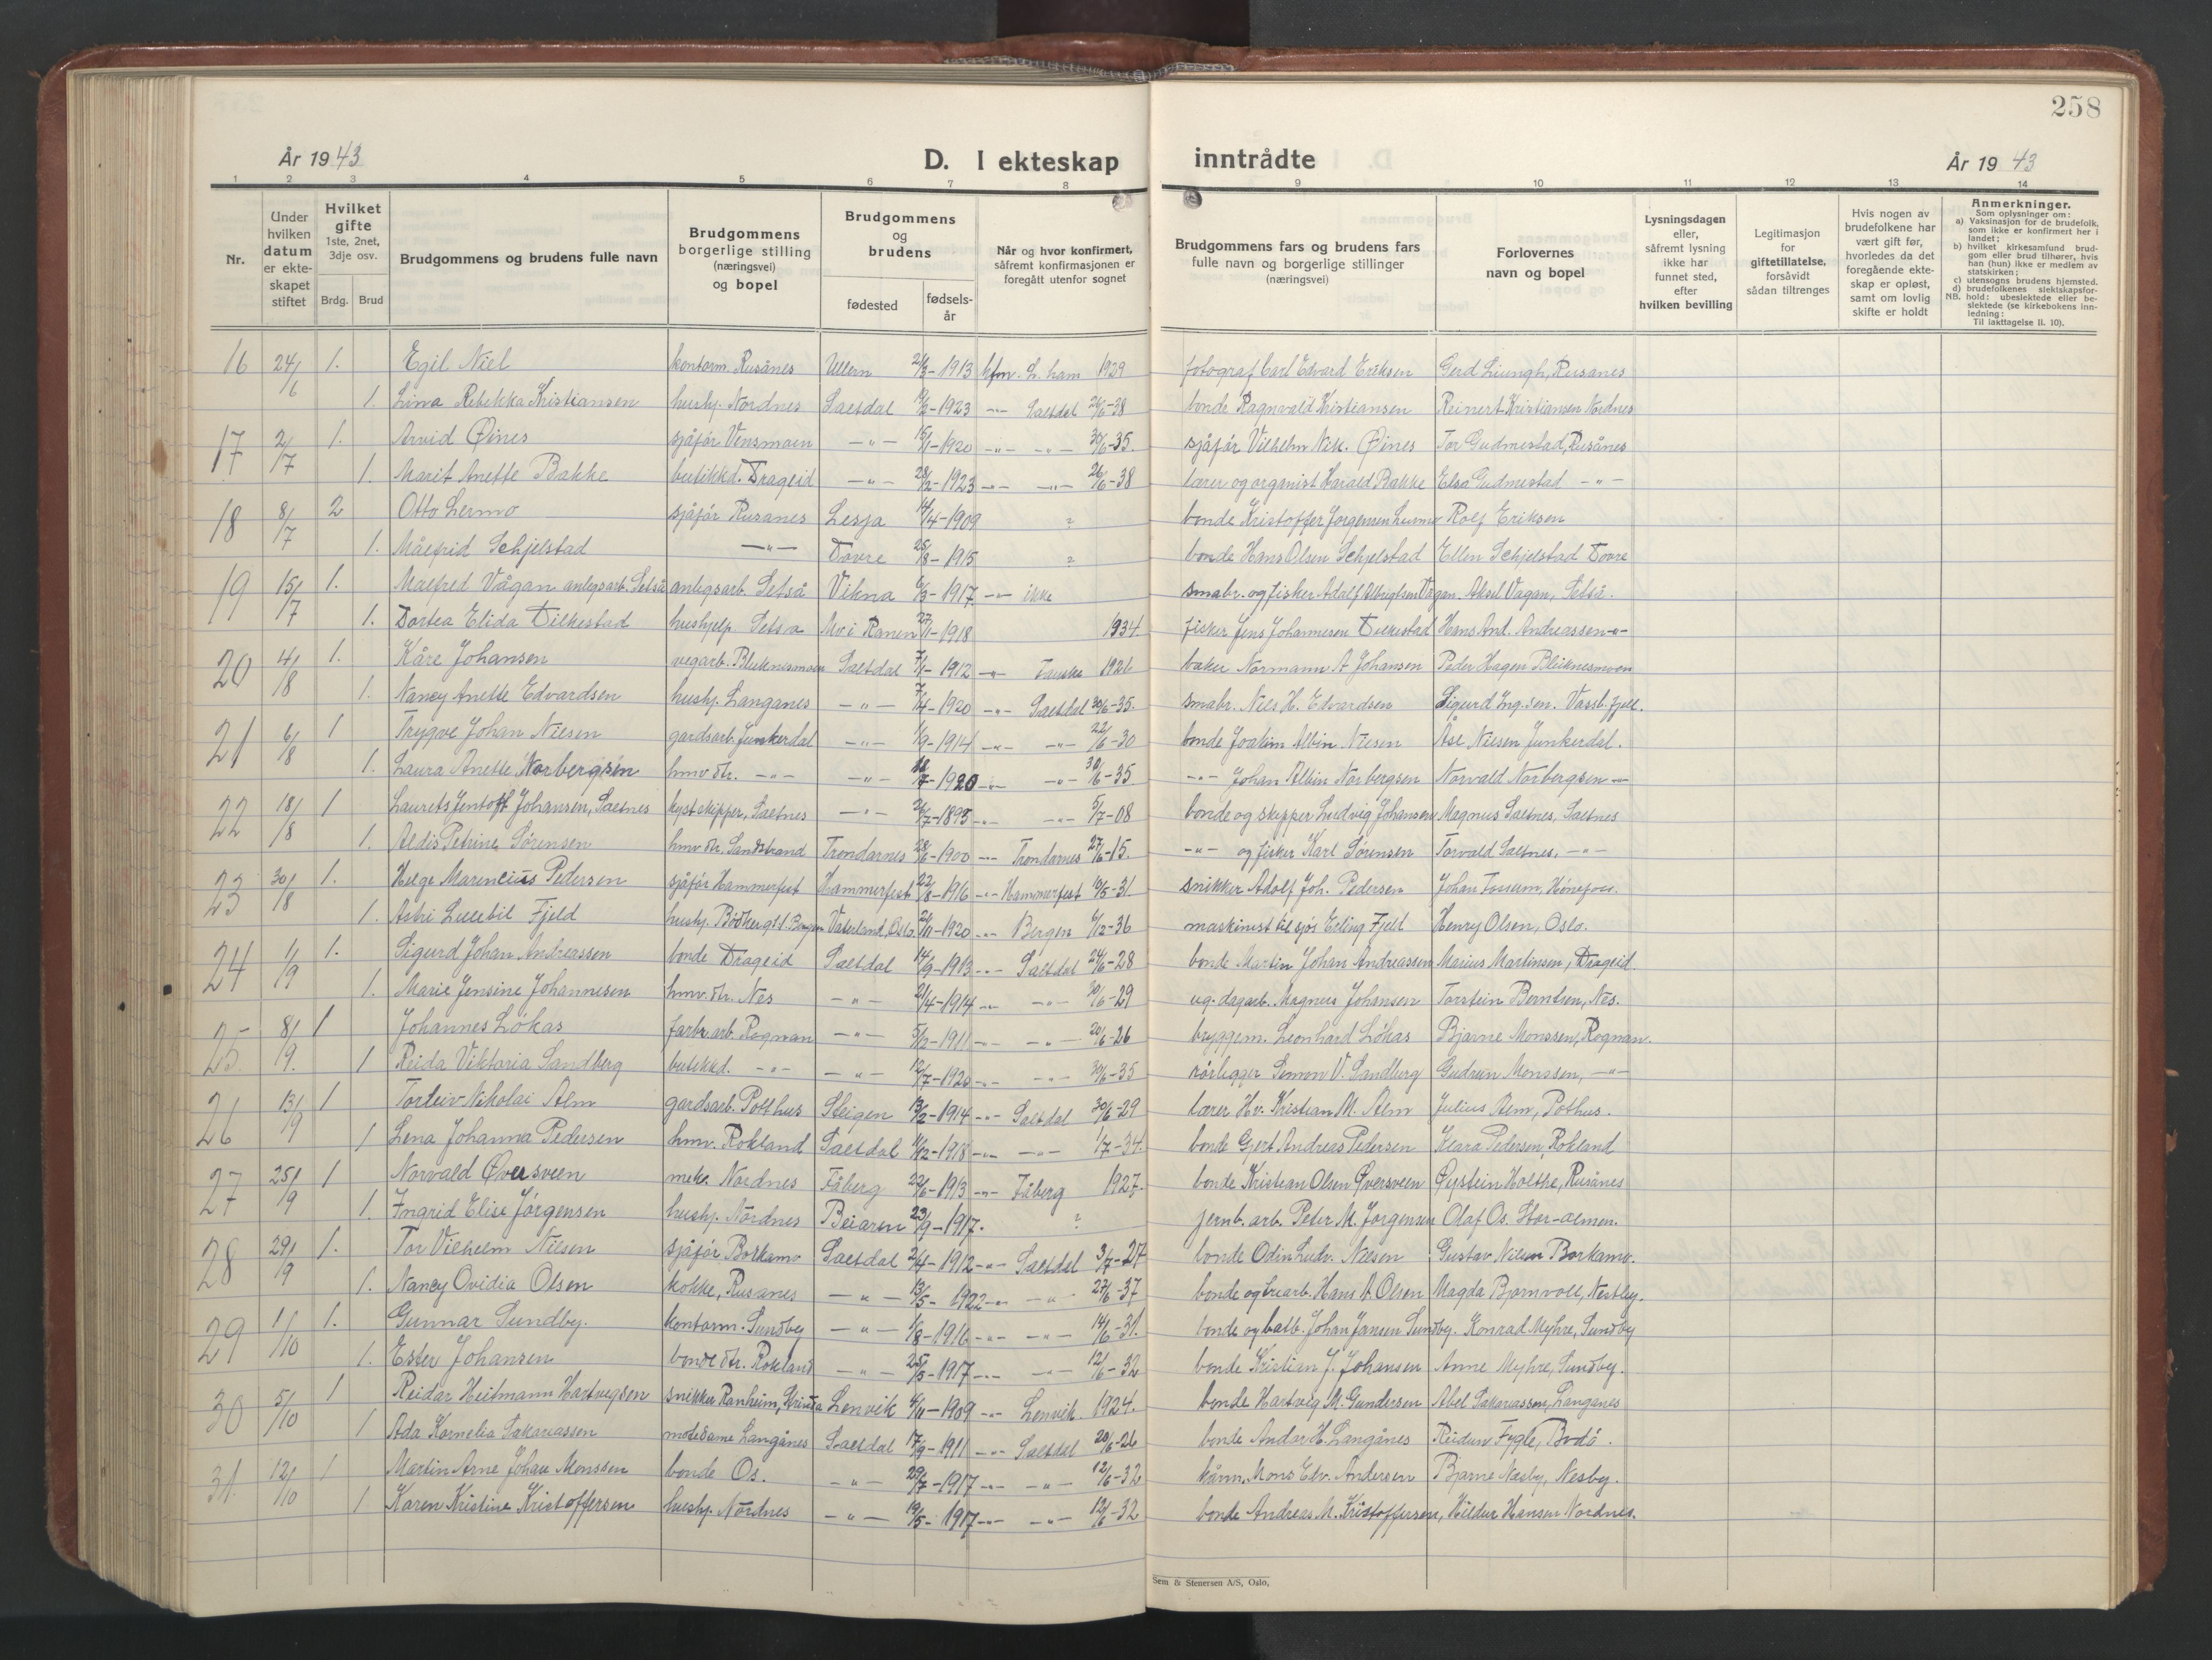 258
År 1943
D. I ekteskap inntrådte
År 1943
1 2 3 4 5 6 7 8 9 10 11 12 13 14
Nr.
Under hvilken datum er ekteskapet stiftet
Hvilket gifte 1ste, 2net, 3dje osv.
Brdg. Brud
Brudgommens og brudens fulle navn
Brudgommens borgerlige stilling (næringsvei) og bopel
Brudgommens og brudens
fødested
fødselsår
Når og hvor konfirmert, såfremt konfirmasjonen er foregått utenfor sognet
Brudgommens fars og brudens fars fulle navn og borgerlige stillinger (næringsvei)
Forlovernes navn og bopel
Lysningsdagen eller, såfremt lysning ikke har funnet sted, efter hvilken bevilling
Legitimasjon for giftetillatelse, forsåvidt sådan tiltrenges
Hvis nogen av brudefolkene har vært gift før, hvorledes da det foregående ekteskap er opløst, samt om lovlig skifte er holdt
Anmerkninger.
Som oplysninger om:
a) Vaksinasjon for de brudefolk, som ikke er konfirmert her i landet;
b) hvilket kirkesamfund brudgom eller brud tilhører, hvis han (hun) ikke er medlem av statskirken;
c) utensogns brudens hjemsted.
d) brudefolkenes slektskapsforhold: ubeslektede eller beslektede (se kirkebokens innledning:
NB. Til iakttagelse II. 10).
16 24/6 1. Egil Niel kontorm. Rusånes Ullern 2/3-1913 kfm. L.ham 1929 fotograf Carl Edvard Eriksen Gerd Ljungh, Rusanes
1. Lina Rebekka Kristiansen hushj. Nordnes Saltdal -1923 -"- Saltdal 26/6-38 bonde Ragnvald Kristiansen Reinert Kristiansen Nordnes
17 2/7 1. Arvid Øines sjåfør Vensmoen -"- 15/1-1920 -"- -"- 30/6-35. sjåfør Vilhelm Nik. Øines Tor Gudmestad, Rusånes
1. Marit Anette Bakke butikkd. Drageid -"- 28/2-1923 -"- -"- 26/6-38 lærer og organist Harald Bakke Elsa Gudmestad -"-
18 8/7 2 Otto Lermo sjåfør Rusanes Lesja 14/4-1909 ? bonde Kristoffer Jørgensen Rolf Eriksen
1. Målfrid Schjelstad -"- Dovre 25/8-1915 ? bonde Hans Olsen Schjelstad Ellen Schjelstad Dovre
19 15/7 1. Malfred Vågan anlegsarb. Setså anlegsarb. Setså Vikna 6/3-1917 -"- ikke småbr. og fisker Adolf Albrigtsen Vågan. Aksel Vågan, Setså.
1. Dortea Elida Dilkestad hushjelp Setså Mo i Ranen 27/1-1918 1934 fisker Jens Johannesen Dilkestad Hans Ant. Andreassen -"-
20 4/8 1. Kåre Johansen vegarb. Bleiknesmoen Saltdal 7/1-1912 -"- Fauske 1926 baker Normann A Johansen Peder Hagen Bleiknesmoen
1. Nancy Anette Edvardsen hushj. Langånes -"- 7/4-1920 -"- Saltdal 30/6-35. småbr. Niels H. Edvardsen Sigurd Ing.sen. Vassb.fjell.
21 6/8 1 Trygve Johan Nilsen gardsarb. Junkerdal -"- 1/9-1914 -"- -"- 22/6-30 bonde Joakim Albin Nilsen Åse Nilsen Junkerdal.
1. Laura Anette Norbergsen hmv dtr. -"- -"- -1920 -"- -"- 30/6-35 -"- Johan Albin Norbergsen Norvald Norbergsen -"-
22 18/8 1 Laurits Jentoft Johansen, Saltnes kystskipper, Saltnes -"- 2/7-1893 -"- -"- 5/7-08 bonde og skipper Ludvig Johansen, Magnus Saltnes, Saltnes
1. Aldis Petrine Sørensen hmv dtr. Sandstrand Trondarnes 28/6-1900 -"- Trondarnes 27/6-15. -"- og fisker Karl Sørensen Torvald Saltnes, -"-
23 30/8 1. Helge Marencius Pedersen sjåfør Hammerfest Hammerfest 22/8-1916 -"- Hammerfest 10/5-31. snikker Adolf Joh. Pedersen Johan Fossum, Hønefoss.
1. Astri Lillebil Fjeld hushj. Bødkergt. 1. Bergen Vaterland, Oslo. -1920 -"- Bergen 6/12-36 maskinist til sjøs Erling Fjeld Henry Olsen, Oslo.
24 1/9 1. Sigurd Johan Andreassen bonde Drageid Saltdal 14/9-1913 -"- Saltdal 24/6-28 bonde Martin Johan Andreassen Marius Martinsen, Drageid
1. Marie Jensine Johannesen hmv. dtr. Nes -"- 21/4-1914 -"- -"- 30/6-29 ug. dagarb. Magnus Johansen Torstein Berntsen, Nes.
25 8/9. 1 Johannes Løkås farbr. arb. Rognan -"- 5/12-1911 -"- -"- 20/6-26 bryggem. Leonhard Løkås Bjarne Monssen, Rognan.
1 Reida Viktoria Sandberg butikkd. -"- -"- 12/7-1920 -"- -"- 30/6-35 rørlegger Simon V. Sandberg Gudrun Monssen, -"-
26 13/9 1 Torleiv Nikolai Alm gardsarb. Potthus Steigen 13/2-1914 -"- Saltdal 30/6-29 lærer Hv. Kristian M. Alm Julius Alm, Pothus.
1 Lena Johanna Pedersen hmv. Rokland Saltdal 11/12-1918 -"- -"- 1/7-34. bonde Gjert Andreas Pedersen Klara Pedersen, Rokland
27 25/9 1 Norvald Øversveen mek. Nordnes Fåberg 22/6-1913 -"- Fåberg 1927. bonde Kristian Olsen Øversveen Øystein Holthe, Rusånes
1. Ingrid Elise Jørgensen hushj. Nordnes Beiaren 23/9-1917. ? jernb. arb. Peter M. Jørgensen Olaf Os. Stor-almen.
28 29/9 1. Tor Vilhelm Nilsen sjåfør Borkamo Saltdal 2/4-1912 -"- Saltdal 3/7-27 bonde Odin Ludv. Nilsen Gustav Nilsen Borkamo.
1. Nancy Ovidia Olsen kokke, Rusanes -"- 13/5-1922 -"- -"- 27/6-37 bonde og trearb. Hans A. Olsen Magda Bjørnvoll, Nestby.
29 1/10 1. Gunnar Sundby. kontorm. Sundby -"- 1/8-1916 -"- -"- 14/6-31. bonde og båtb. Johan Jansen Sundby. Konrad Myhre, Sundby
1. Ester Johansen bonde dtr. Rokland -"- 25/5-1917 -"- -"- 12/6-32 bonde Kristian J. Johansen Anne Myhre, Sundby.
30 5/10 1 Reidar Heitmann Hartvigsen snikker Ranheim, Strinda Lenvik 4/11-1909 -"- Lenvik. 1924. bonde Hartvig M. Gundersen Abel Sakariassen, Langånes
1 Ada Kornelia Sakariassen motedame Langånes Saltdal 17/9-1911 -"- Saltdal 20/6-26 bonde Andor H. Langånes Reidun Fygle, Bodø.
31. 12/10 1 Martin Arne Johan Monssen bonde Os. -"- 29/7-1917 -"- -"- 12/6-32 kånn. Mons Edv. Andersen Bjarne Næsby, Nesby.
1 Karen Kristine Kristoffersen hushj. Nordnes -"- 19/5-1917 -"- -"- 12/6-32 bonde Andreas M. Kristoffersen, Hildur Hansen Nordnes.
Sem & Stenersen A/S, Oslo,